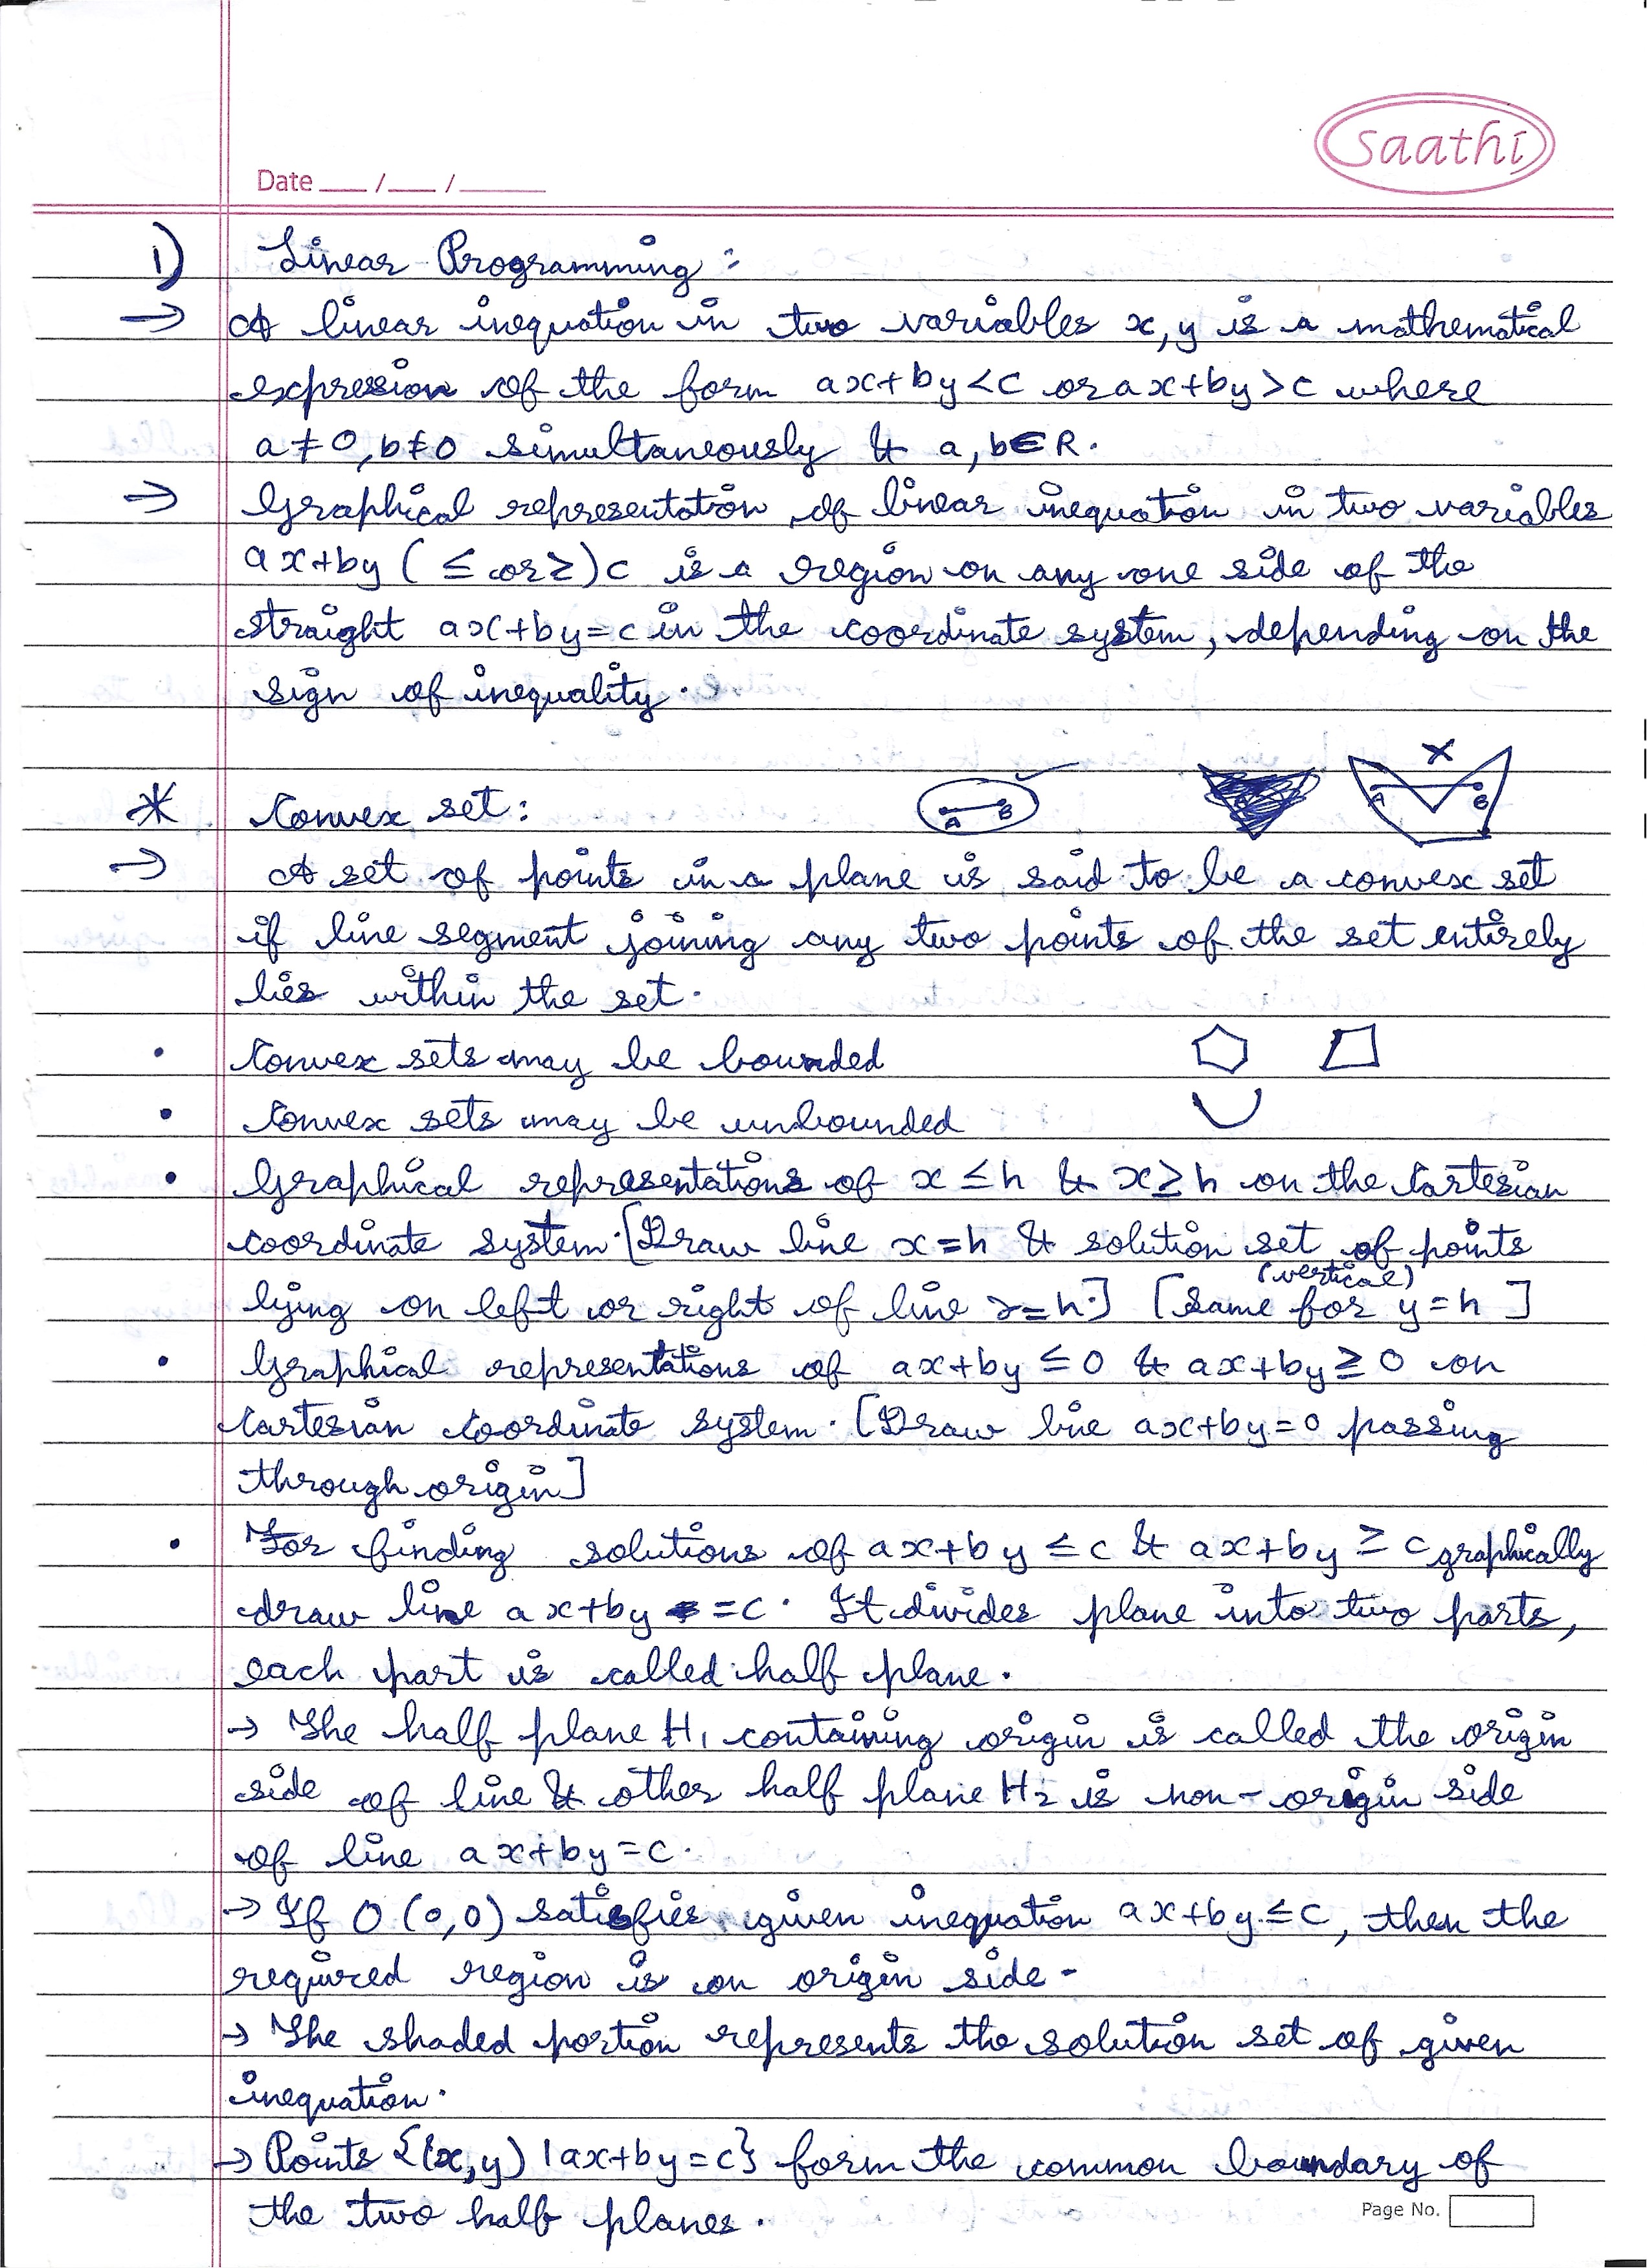 saathi
Date ___/___/_____
1) Linear Programming :
→ A linear inequation in two variables x, y is a mathematical
expression of the form ax+by<c or ax+by>c where
a≠0, b≠0 simultaneously & a, b∈R.
→ Graphical representation of linear inequation in two variables
ax+by (≤ or ≥) c is a region on any one side of the
straight ax+by=c in the coordinate system, depending on the
sign of inequality.
X
* Convex set: A B A B
→ A set of points in a plane is said to be a convex set
if line segment joining any two points of the set entirely
lies within the set.
• Convex sets may be bounded
• Convex sets may be unbounded
• Graphical representations of x ≤ h & x ≥ h on the Cartesian
coordinate system. [Draw line x=h & solution set of points
(vertical)
lying on left or right of line x=h.] [Same for y=h ]
• Graphical representations of ax+by ≤ 0 & ax+by ≥ 0 on
Cartesian Coordinate system. [Draw line ax+by=0 passing
through origin]
• For finding solutions of ax+by ≤ c & ax+by ≥ c graphically
draw line ax+by = c. It divides plane into two parts,
each part is called half plane.
→ The half plane H₁ containing origin is called the origin
side of line & other half plane H₂ is non-origin side
of line ax+by=c.
→ If O (0,0) satisfies given inequation ax+by ≤ c, then the
required region is on origin side-
→ The shaded portion represents the solution set of given
inequation.
→ Points {(x,y) | ax+by=c} form the common boundary of
the two half planes.
Page No.